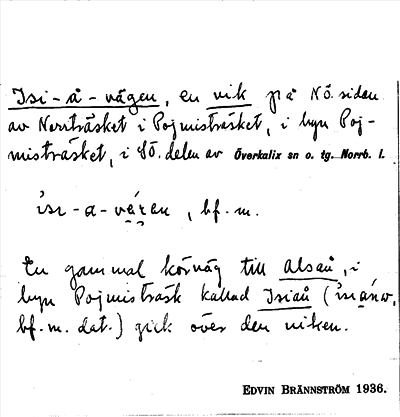 Isi-å-vägen, en vik på Nö. sidan
av Norrträsket i Pojmisträsket, i byn Poj-
misträsket, i SÖ. delen av Överkalix sn o. tg. Norrb. l.
ɩ́sɩ-a-vé̬ɾ̬en, bf. m.
En gammal körväg till Alsån, i
byn Pojmisträsk kallad Isiån (
bf. m. dat.) gick över den viken.
EDVIN BRÄNNSTRÖM 1936.